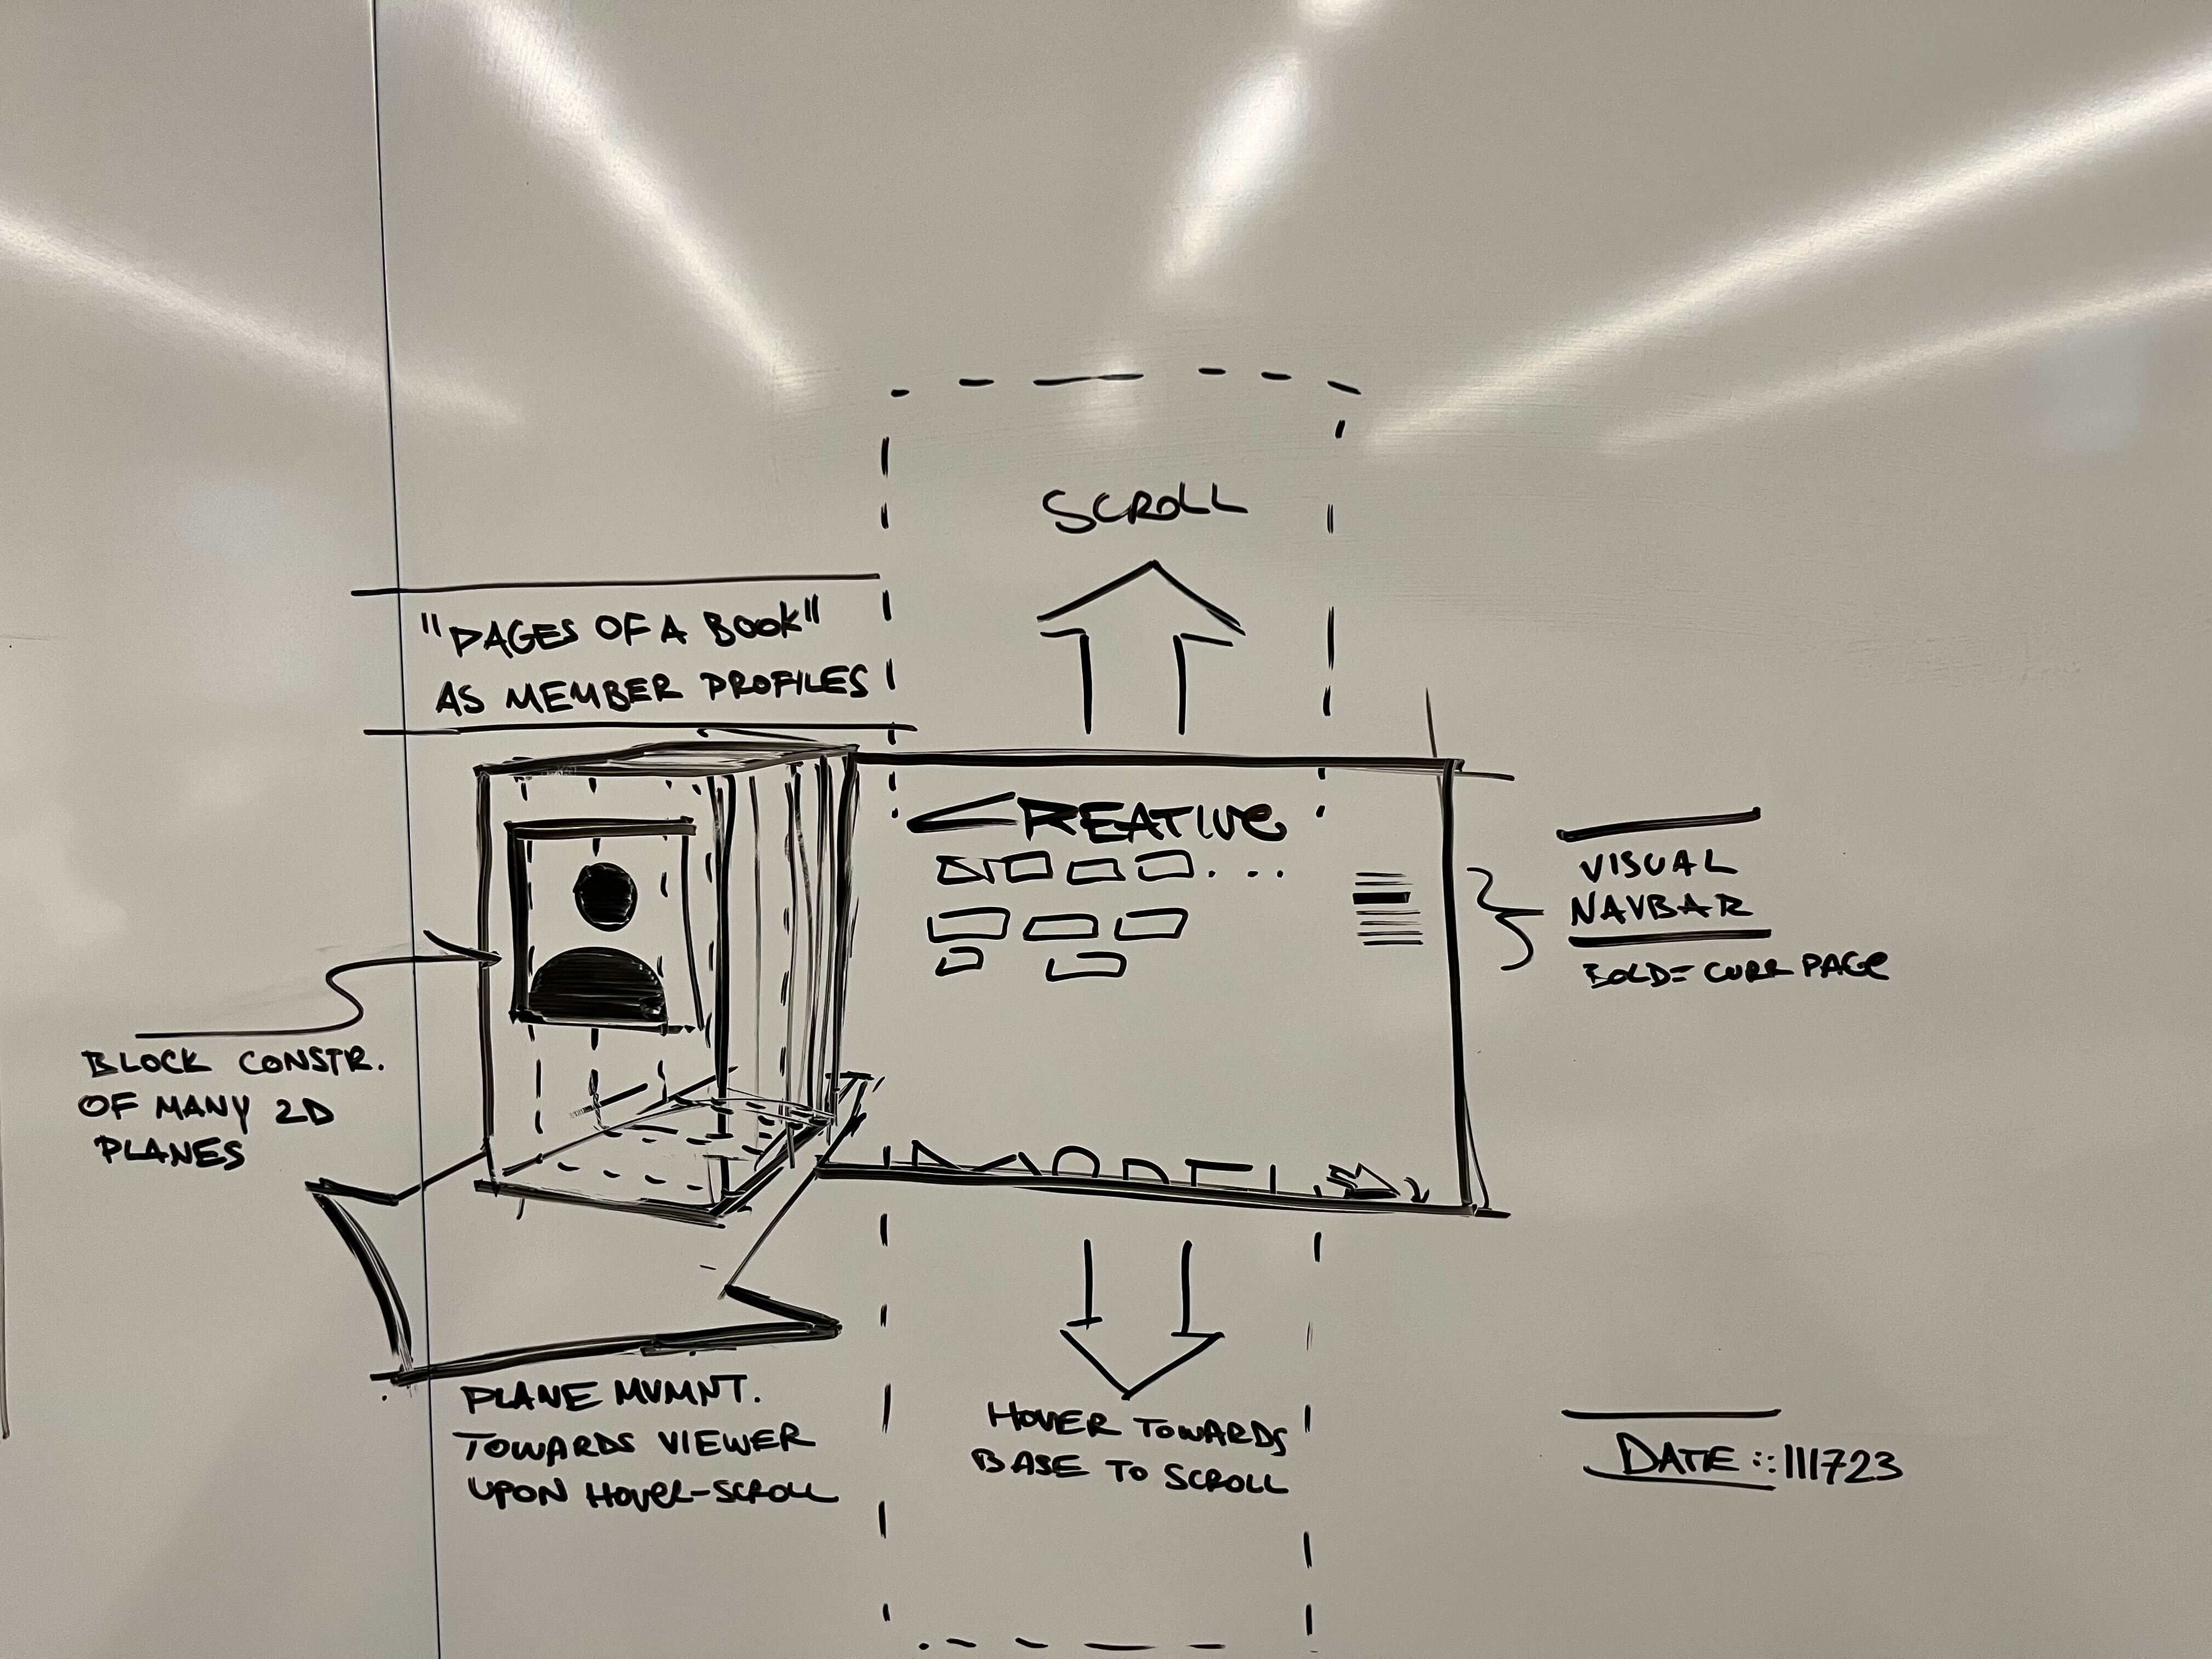 SCROLL
"PAGES OF A BOOK"
AS MEMBER PROFILES
CREATIVE
...
VISUAL
NAVBAR
BOLD = CURR PAGE
BLOCK CONSTR.
OF MANY 2D
PLANES
PLANE MVMNT.
TOWARDS VIEWER
UPON HOVER-SCROLL
HOVER TOWARDS
BASE TO SCROLL
DATE :: 111723